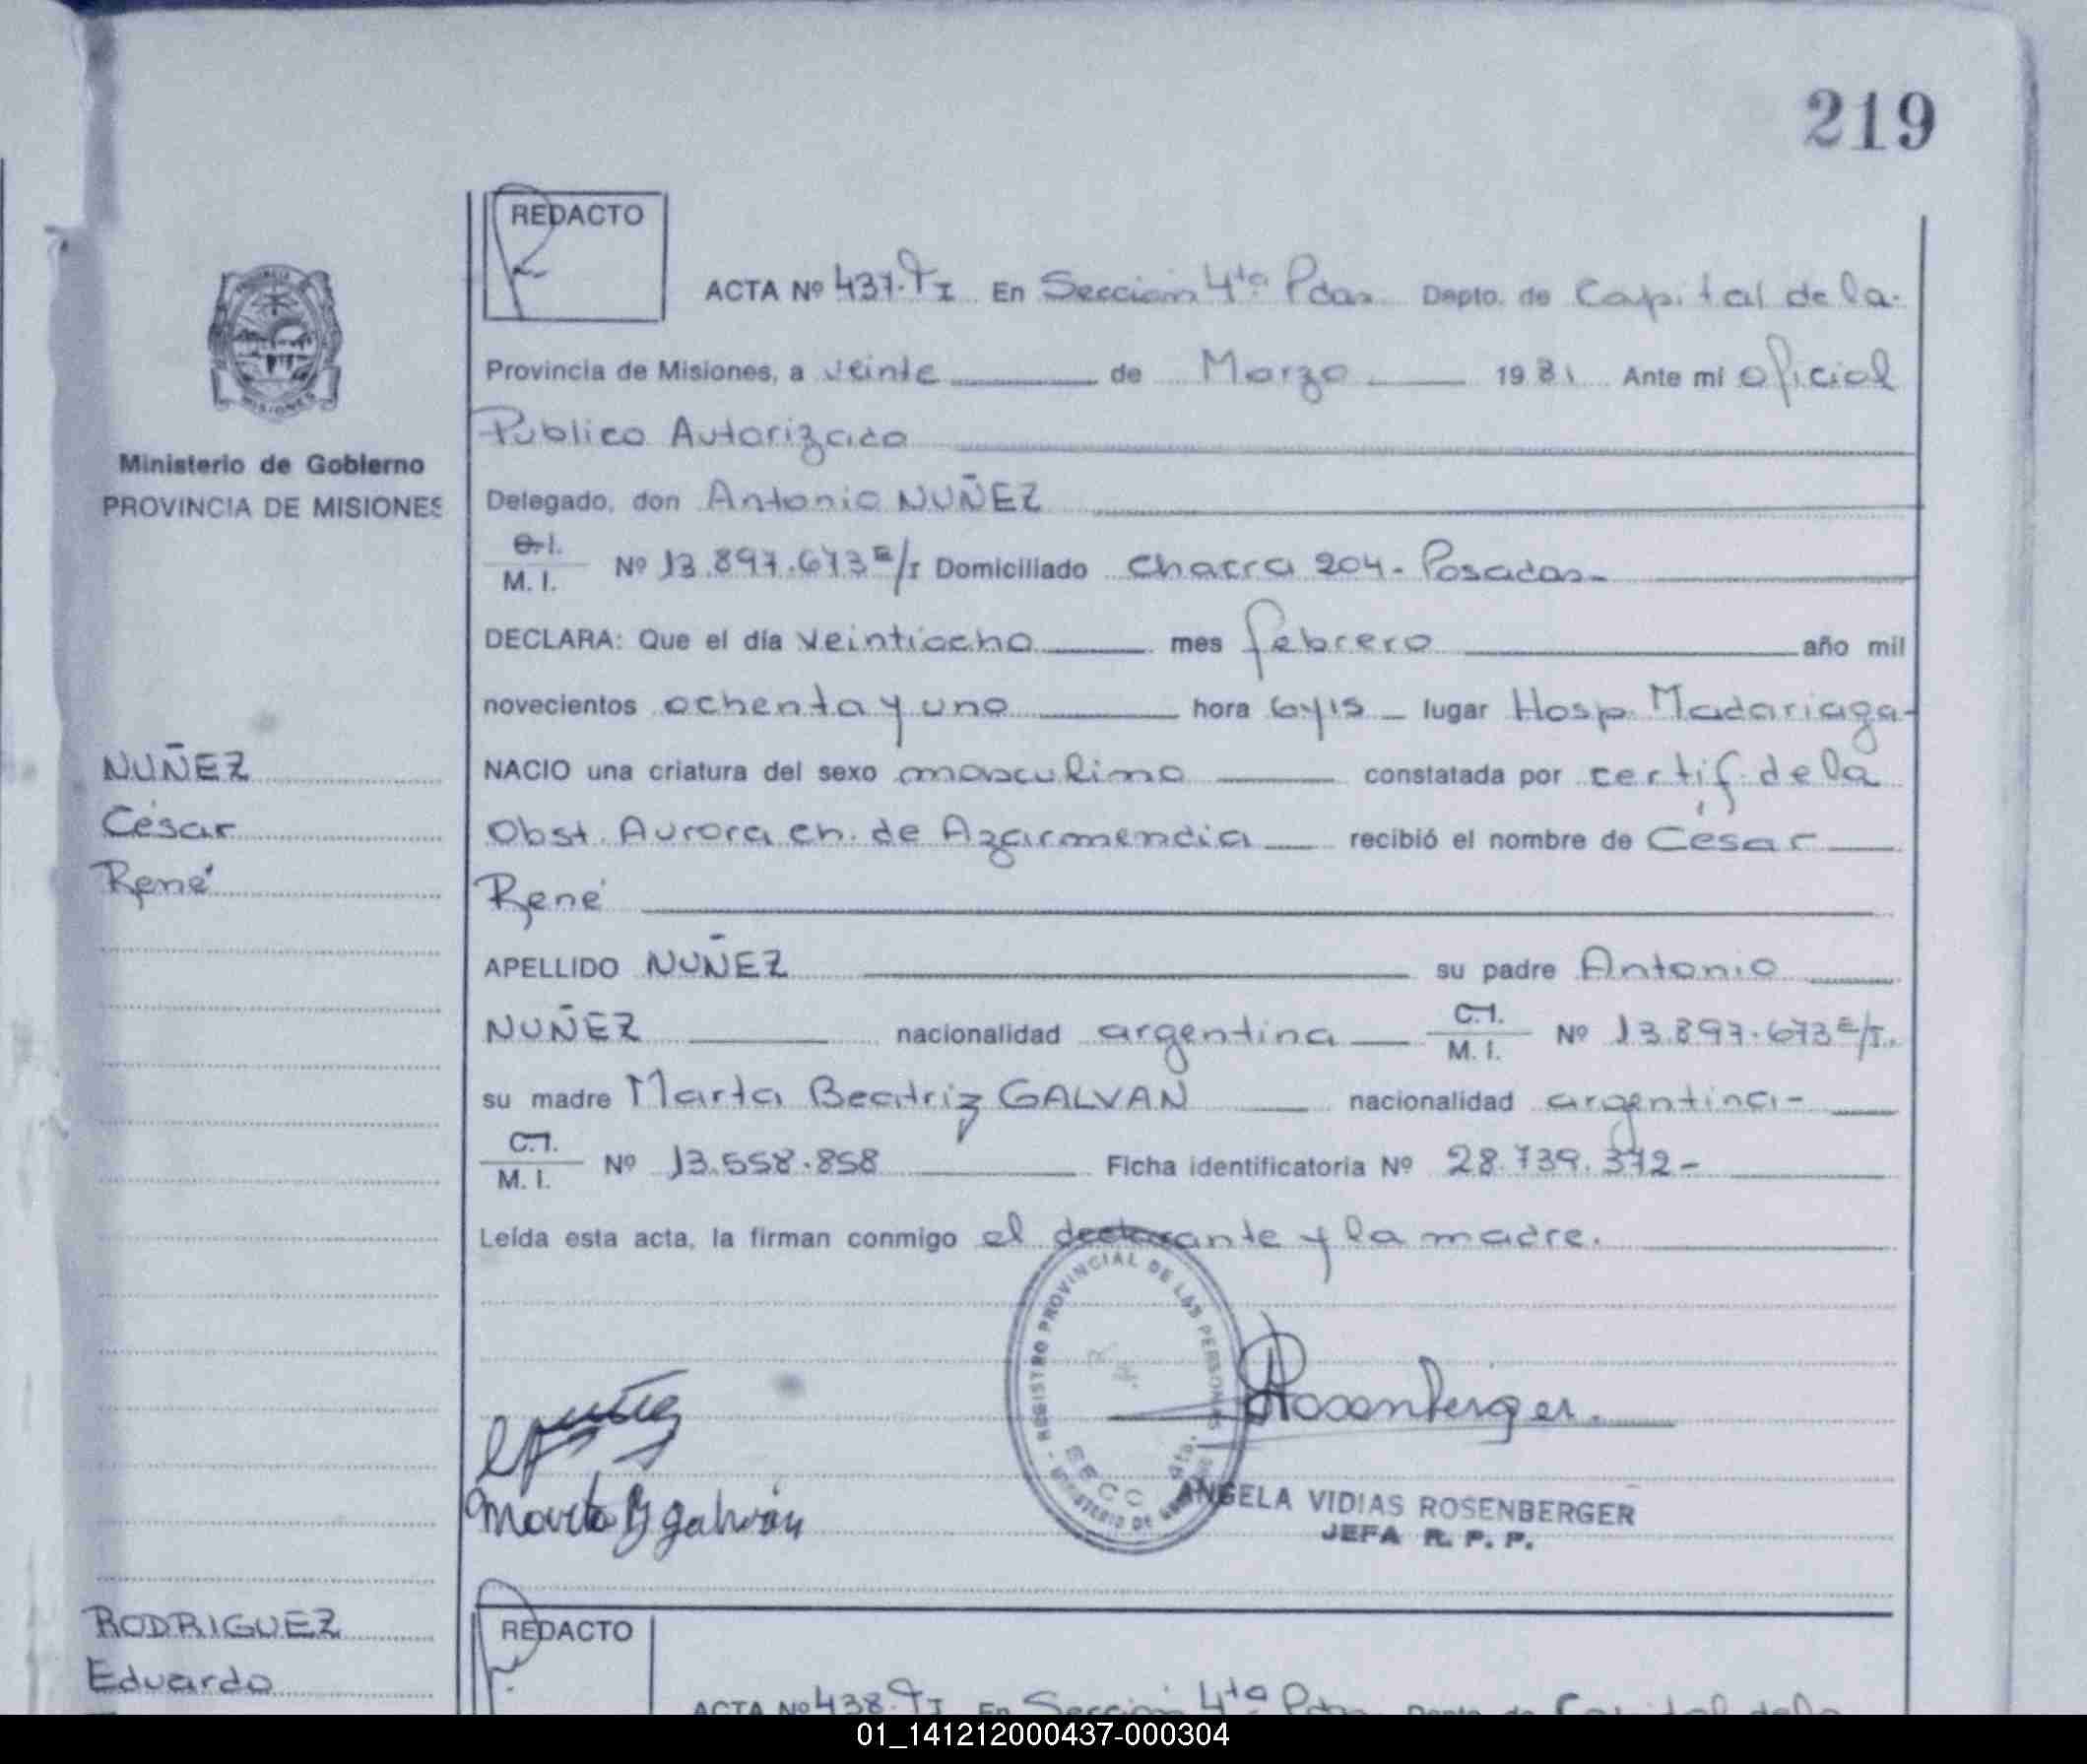 219
REDACTO
ACTA Nº 437. TI En Sección 4ta Pdas. Depto. de Capital de la.
Provincia de Misiones, a veinte de Marzo 1981 Ante mi oficial
Publico Autorizado
Ministerio de Gobierno
PROVINCIA DE MISIONES
Delegado, don Antonio NUÑEZ
C.I.
M. I. Nº 13.897.673 E/T Domiciliado Chacra 204 - Posadas -
DECLARA: Que el día veintiocho mes febrero año mil
novecientos ochenta y uno hora 6y15 - lugar Hosp. Madariaga-
NUÑEZ
César
René
NACIO una criatura del sexo masculino constatada por certif. de la
Obst. Aurora ch. de Azarmendia recibió el nombre de César
René
APELLIDO NUÑEZ su padre Antonio
NUÑEZ nacionalidad argentina C.I.
M. I. Nº 13.897.673 E/T.
su madre Marta Beatriz GALVAN nacionalidad argentina -
C.I.
M. I. Nº 13.558.858 Ficha identificatoria Nº 28.739.372 -
Leída esta acta, la firman conmigo el declarante y la madre.
REGISTRO PROVINCIAL DE LAS PERSONAS
SECC 4ta.
MINISTERIO DE
Rosenberger.
Marta B galván
ANGELA VIDIAS ROSENBERGER
JEFA R. P. P.
RODRIGUEZ
Eduardo
REDACTO
ACTA Nº 438. TI En Sección 4ta Pdas. Depto de Capital de la
01_141212000437-000304